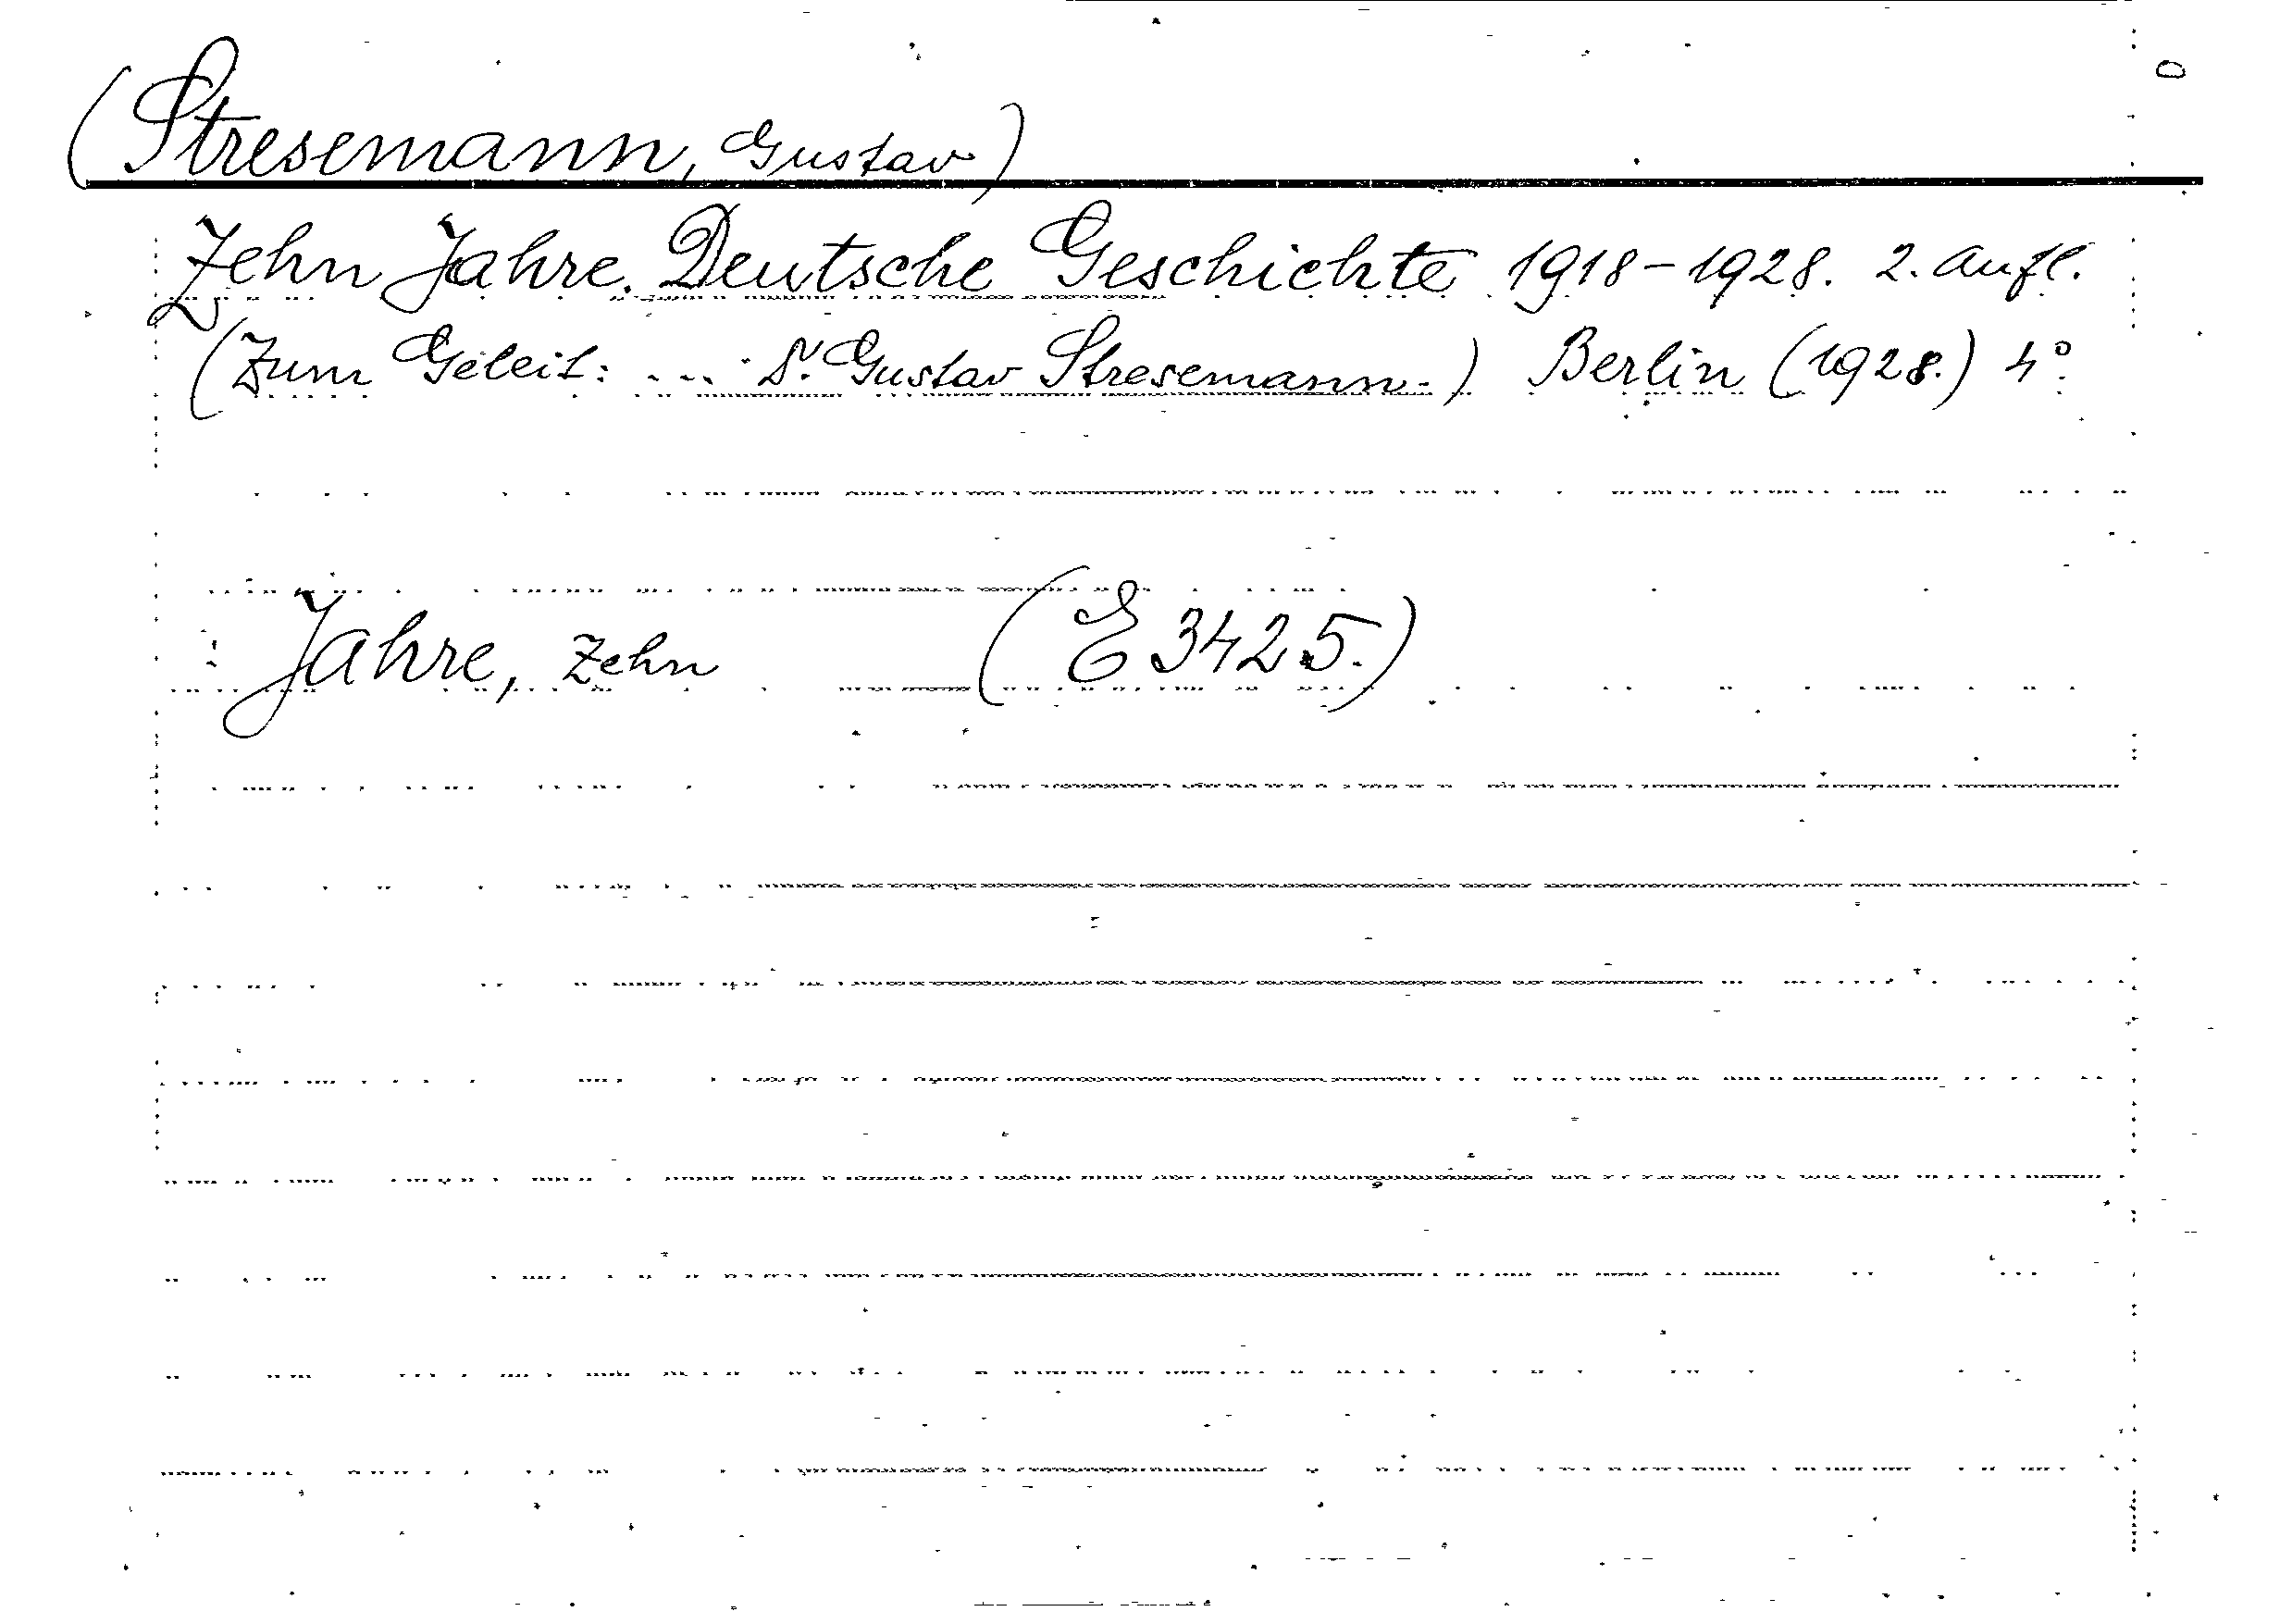 (Stresemann, Gustav)
Zehn Jahre. Deutsche Geschichte 1918-1928. 2. Aufl.
(Zum Geleit: ... Dr. Gustav Stresemann.) Berlin (1928.) 4°.
: Jahre, Zehn (E 3425.)